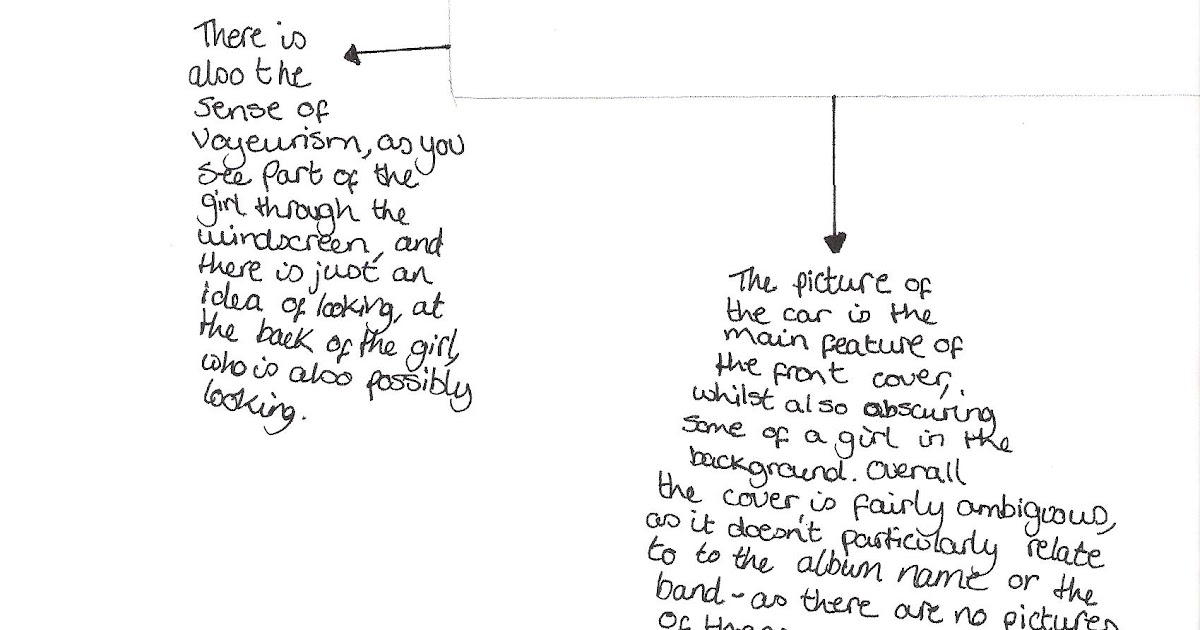 There is
also the
sense of
voyeurism, as you
see part of the
girl through the
windscreen, and
there is just an
idea of looking, at
the back of the girl,
who is also possibly
looking.
The picture of
the car is the
main feature of
the front cover,
whilst also obscuring
some of a girl in the
background. Overall
the cover is fairly ambiguous,
as it doesn't particularly relate
to to the album name or the
band - as there are no pictures
of